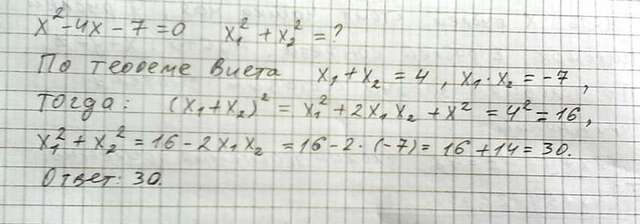 x² - 4x - 7 = 0 x₁² + x₂² = ?
По теореме Виета x₁ + x₂ = 4 , x₁ · x₂ = -7 ,
Тогда: (x₁ + x₂)² = x₁² + 2x₁x₂ + x² = 4² = 16 ,
x₁² + x₂² = 16 - 2x₁x₂ = 16 - 2 · (-7) = 16 + 14 = 30.
Ответ: 30.